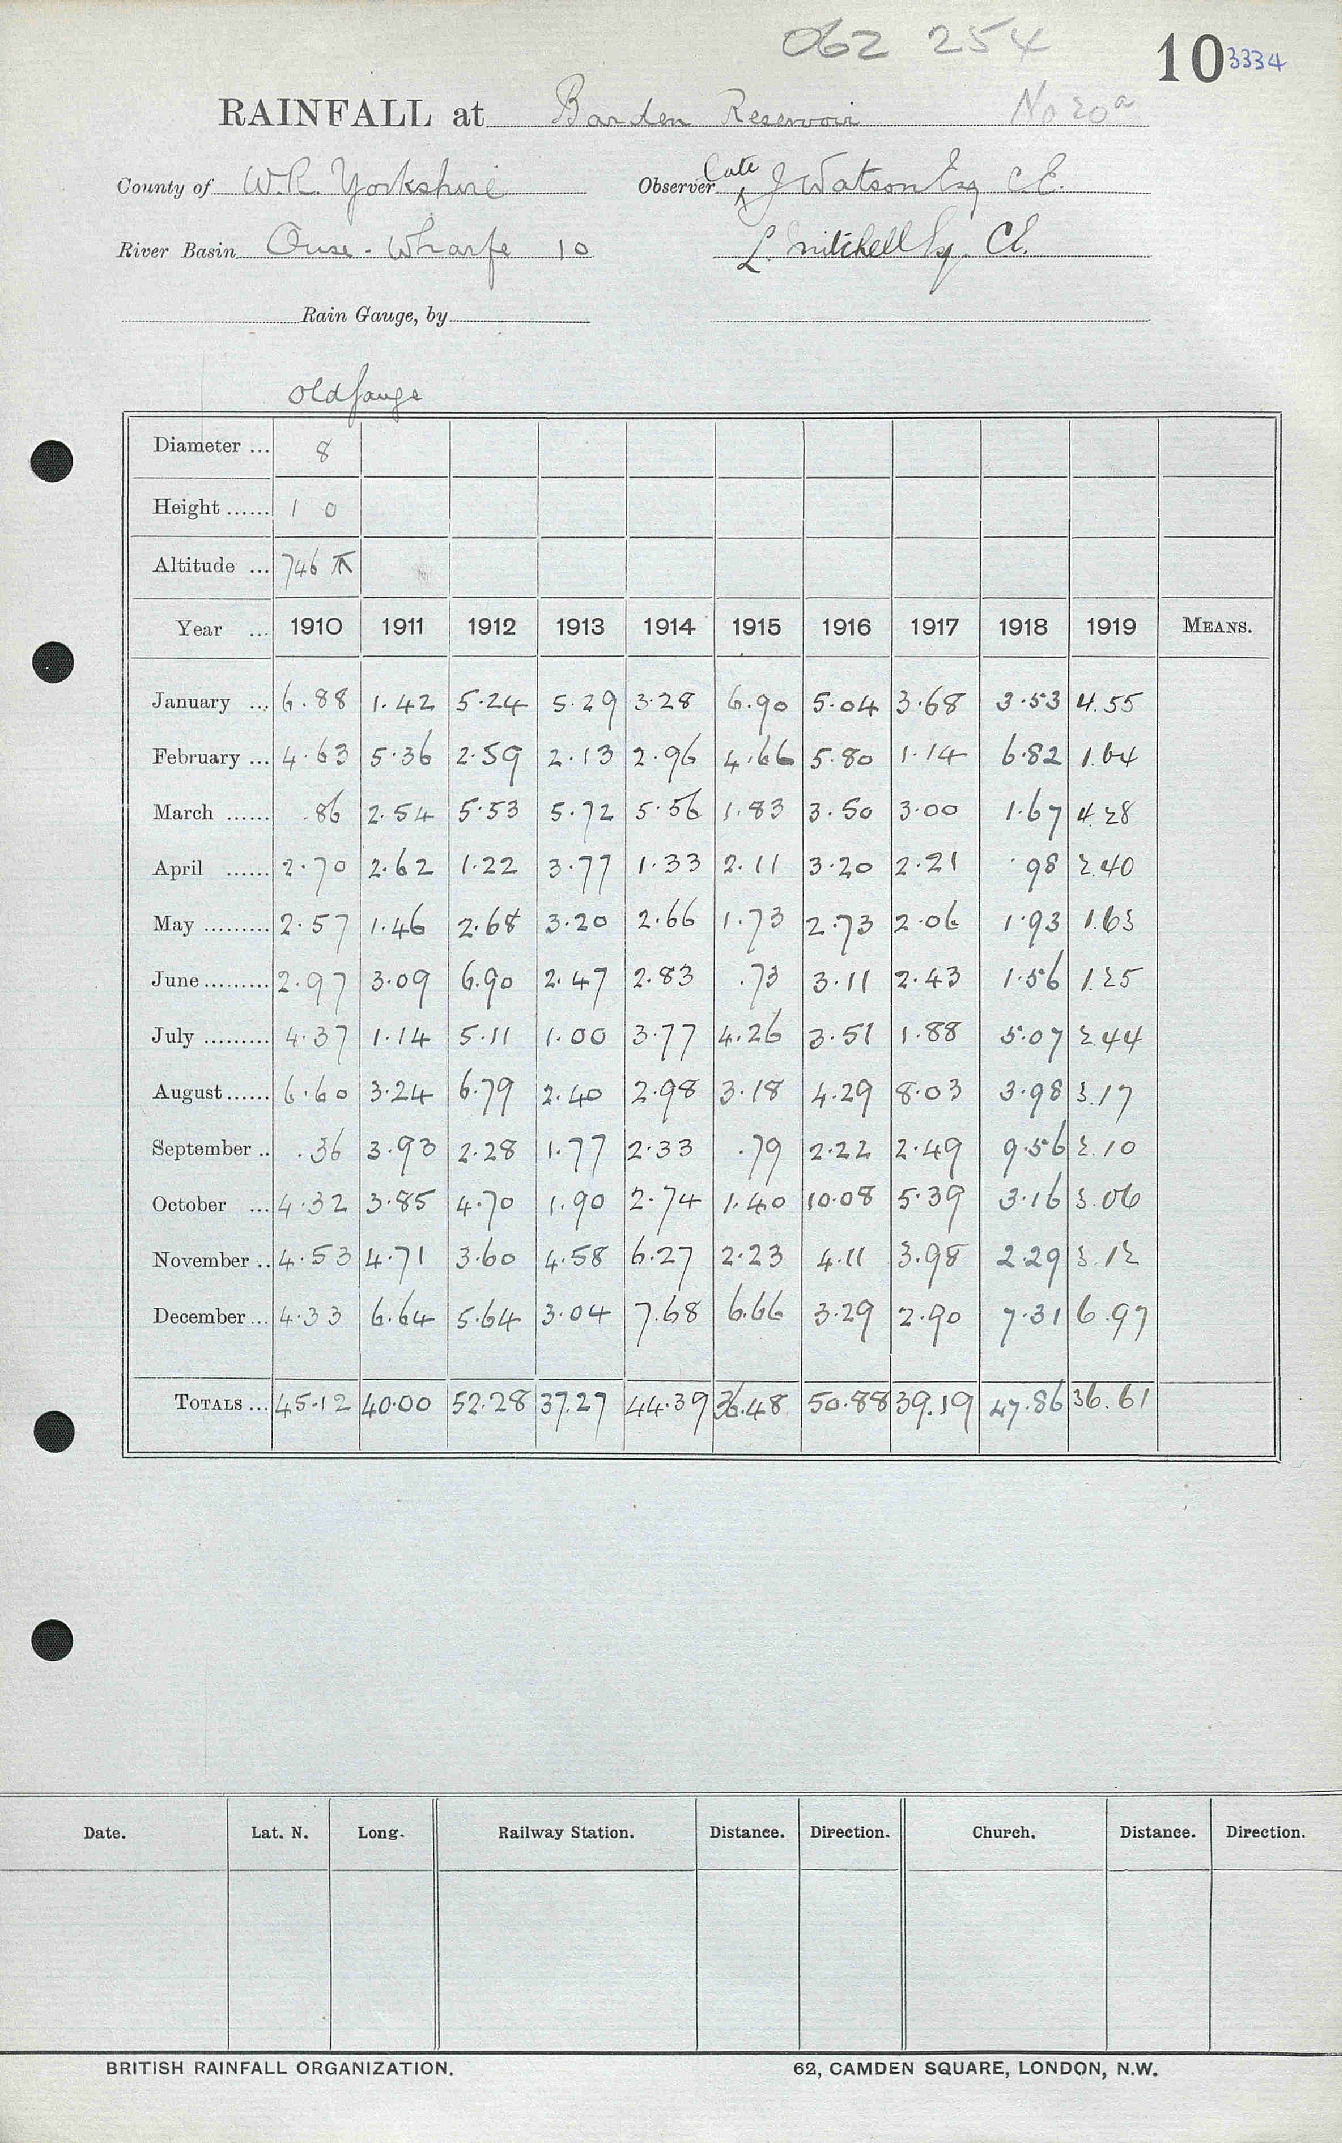 062 254
10 3334
RAINFALL at Barden Reservoir No 20a
County of W.R. Yorkshire Observer Late J Watson Esq C.E.
River Basin Ouse - Wharfe 10 L. Mitchell Esq. CE.
Rain Gauge, by
Old Gauge
Diameter ... 8
Height ...... 1 0
Altitude ... 746
Year ... 1910 1911 1912 1913 1914 1915 1916 1917 1918 1919 MEANS.
January ... 6.88 1.42 5.24 5.29 3.28 6.90 5.04 3.68 3.53 4.55
February ... 4.63 5.36 2.59 2.13 2.96 4.66 5.80 1.14 6.82 1.64
March ...... .86 2.54 5.53 5.72 5.56 1.83 3.50 3.00 1.67 4.28
April ...... 2.70 2.62 1.22 3.77 1.33 2.11 3.20 2.21 .98 2.40
May ......... 2.57 1.46 2.68 3.20 2.66 1.73 2.73 2.06 1.93 1.63
June ......... 2.97 3.09 6.90 2.47 2.83 .73 3.11 2.43 1.56 1.25
July ......... 4.37 1.14 5.11 1.00 3.77 4.26 3.51 1.88 5.07 2.44
August ...... 6.60 3.24 6.79 2.40 2.98 3.18 4.29 8.03 3.98 3.17
September .. .36 3.93 2.28 1.77 2.33 .79 2.22 2.49 9.56 2.10
October ... 4.32 3.85 4.70 1.90 2.74 1.40 10.08 5.39 3.16 3.06
November .. 4.53 4.71 3.60 4.58 6.27 2.23 4.11 3.98 2.29 3.12
December ... 4.33 6.64 5.64 3.04 7.68 6.66 3.29 2.90 7.31 6.97
TOTALS ... 45.12 40.00 52.28 37.27 44.39 36.48 50.88 39.19 47.86 36.61
Date. Lat. N. Long. Railway Station. Distance. Direction. Church. Distance. Direction.
BRITISH RAINFALL ORGANIZATION. 62, CAMDEN SQUARE, LONDON, N.W.